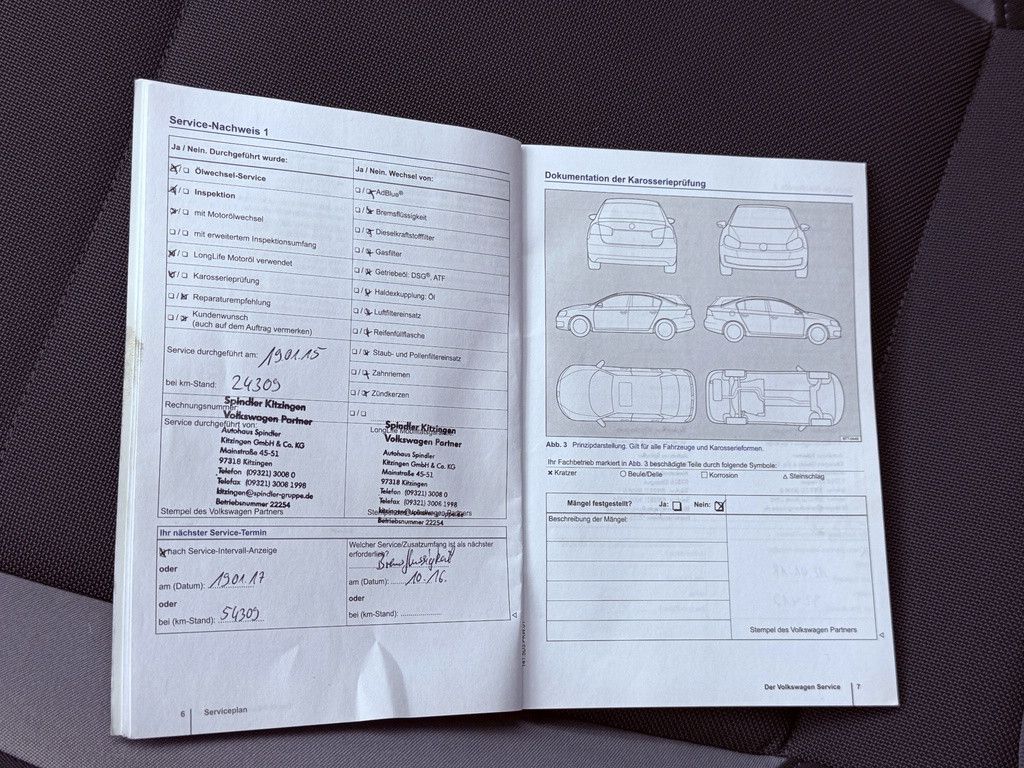 Service-Nachweis 1
Ja / Nein. Durchgeführt wurde:
Ölwechsel-Service
Inspektion
mit Motorölwechsel
mit erweitertem Inspektionsumfang
LongLife Motoröl verwendet
Karosserieprüfung
Reparaturempfehlung
Kundenwunsch
(auch auf dem Auftrag vermerken)
Service durchgeführt am: 19.01.15
bei km-Stand: 24309
Rechnungsnummer
Service durchgeführt von:
Spindler Kitzingen
Volkswagen Partner
Autohaus Spindler
Kitzingen GmbH & Co. KG
Mainstraße 45-51
97318 Kitzingen
Telefon (09321) 3008 0
Telefax (09321) 3008 1998
kitzingen@spindler-gruppe.de
Betriebsnummer 22254
Stempel des Volkswagen Partners
Ja / Nein. Wechsel von:
AdBlue®
Bremsflüssigkeit
Dieselkraftstofffilter
Gasfilter
Getriebeöl: DSG®, ATF
Haldexkupplung: Öl
Luftfiltereinsatz
Reifenfüllflasche
Staub- und Pollenfiltereinsatz
Zahnriemen
Zündkerzen
Spindler Kitzingen
Volkswagen Partner
Autohaus Spindler
Kitzingen GmbH & Co. KG
Mainstraße 45-51
97318 Kitzingen
Telefon (09321) 3008 0
Telefax (09321) 3008 1998
kitzingen@spindler-gruppe.de
Betriebsnummer 22254
Ihr nächster Service-Termin
nach Service-Intervall-Anzeige
oder
am (Datum): 19.01.17
oder
bei (km-Stand): 54309
Welcher Service/Zusatzumfang ist als nächster
erforderlich?
Bremsflüssigkeit
am (Datum): 10.16.
oder
bei (km-Stand):
6 Serviceplan
Dokumentation der Karosserieprüfung
Abb. 3 Prinzipdarstellung. Gilt für alle Fahrzeuge und Karosserieformen.
Ihr Fachbetrieb markiert in Abb. 3 beschädigte Teile durch folgende Symbole:
× Kratzer ○ Beule/Delle □ Korrosion △ Steinschlag
Mängel festgestellt? Ja: Nein:
Beschreibung der Mängel:
Stempel des Volkswagen Partners
Der Volkswagen Service 7